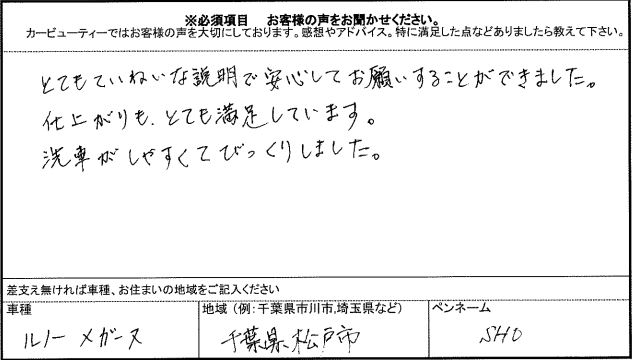 ※必須項目　お客様の声をお聞かせください。
カービューティーではお客様の声を大切にしております。感想やアドバイス。特に満足した点などありましたら教えて下さい。
とてもていねいな説明で安心してお願いすることができました。
仕上がりも、とても満足しています。
洗車がしやすくてびっくりしました。
差支え無ければ車種、お住まいの地域をご記入ください
車種
地域（例：千葉県市川市,埼玉県など）
ペンネーム
ルノー メガーヌ
千葉県、松戸市
SHO